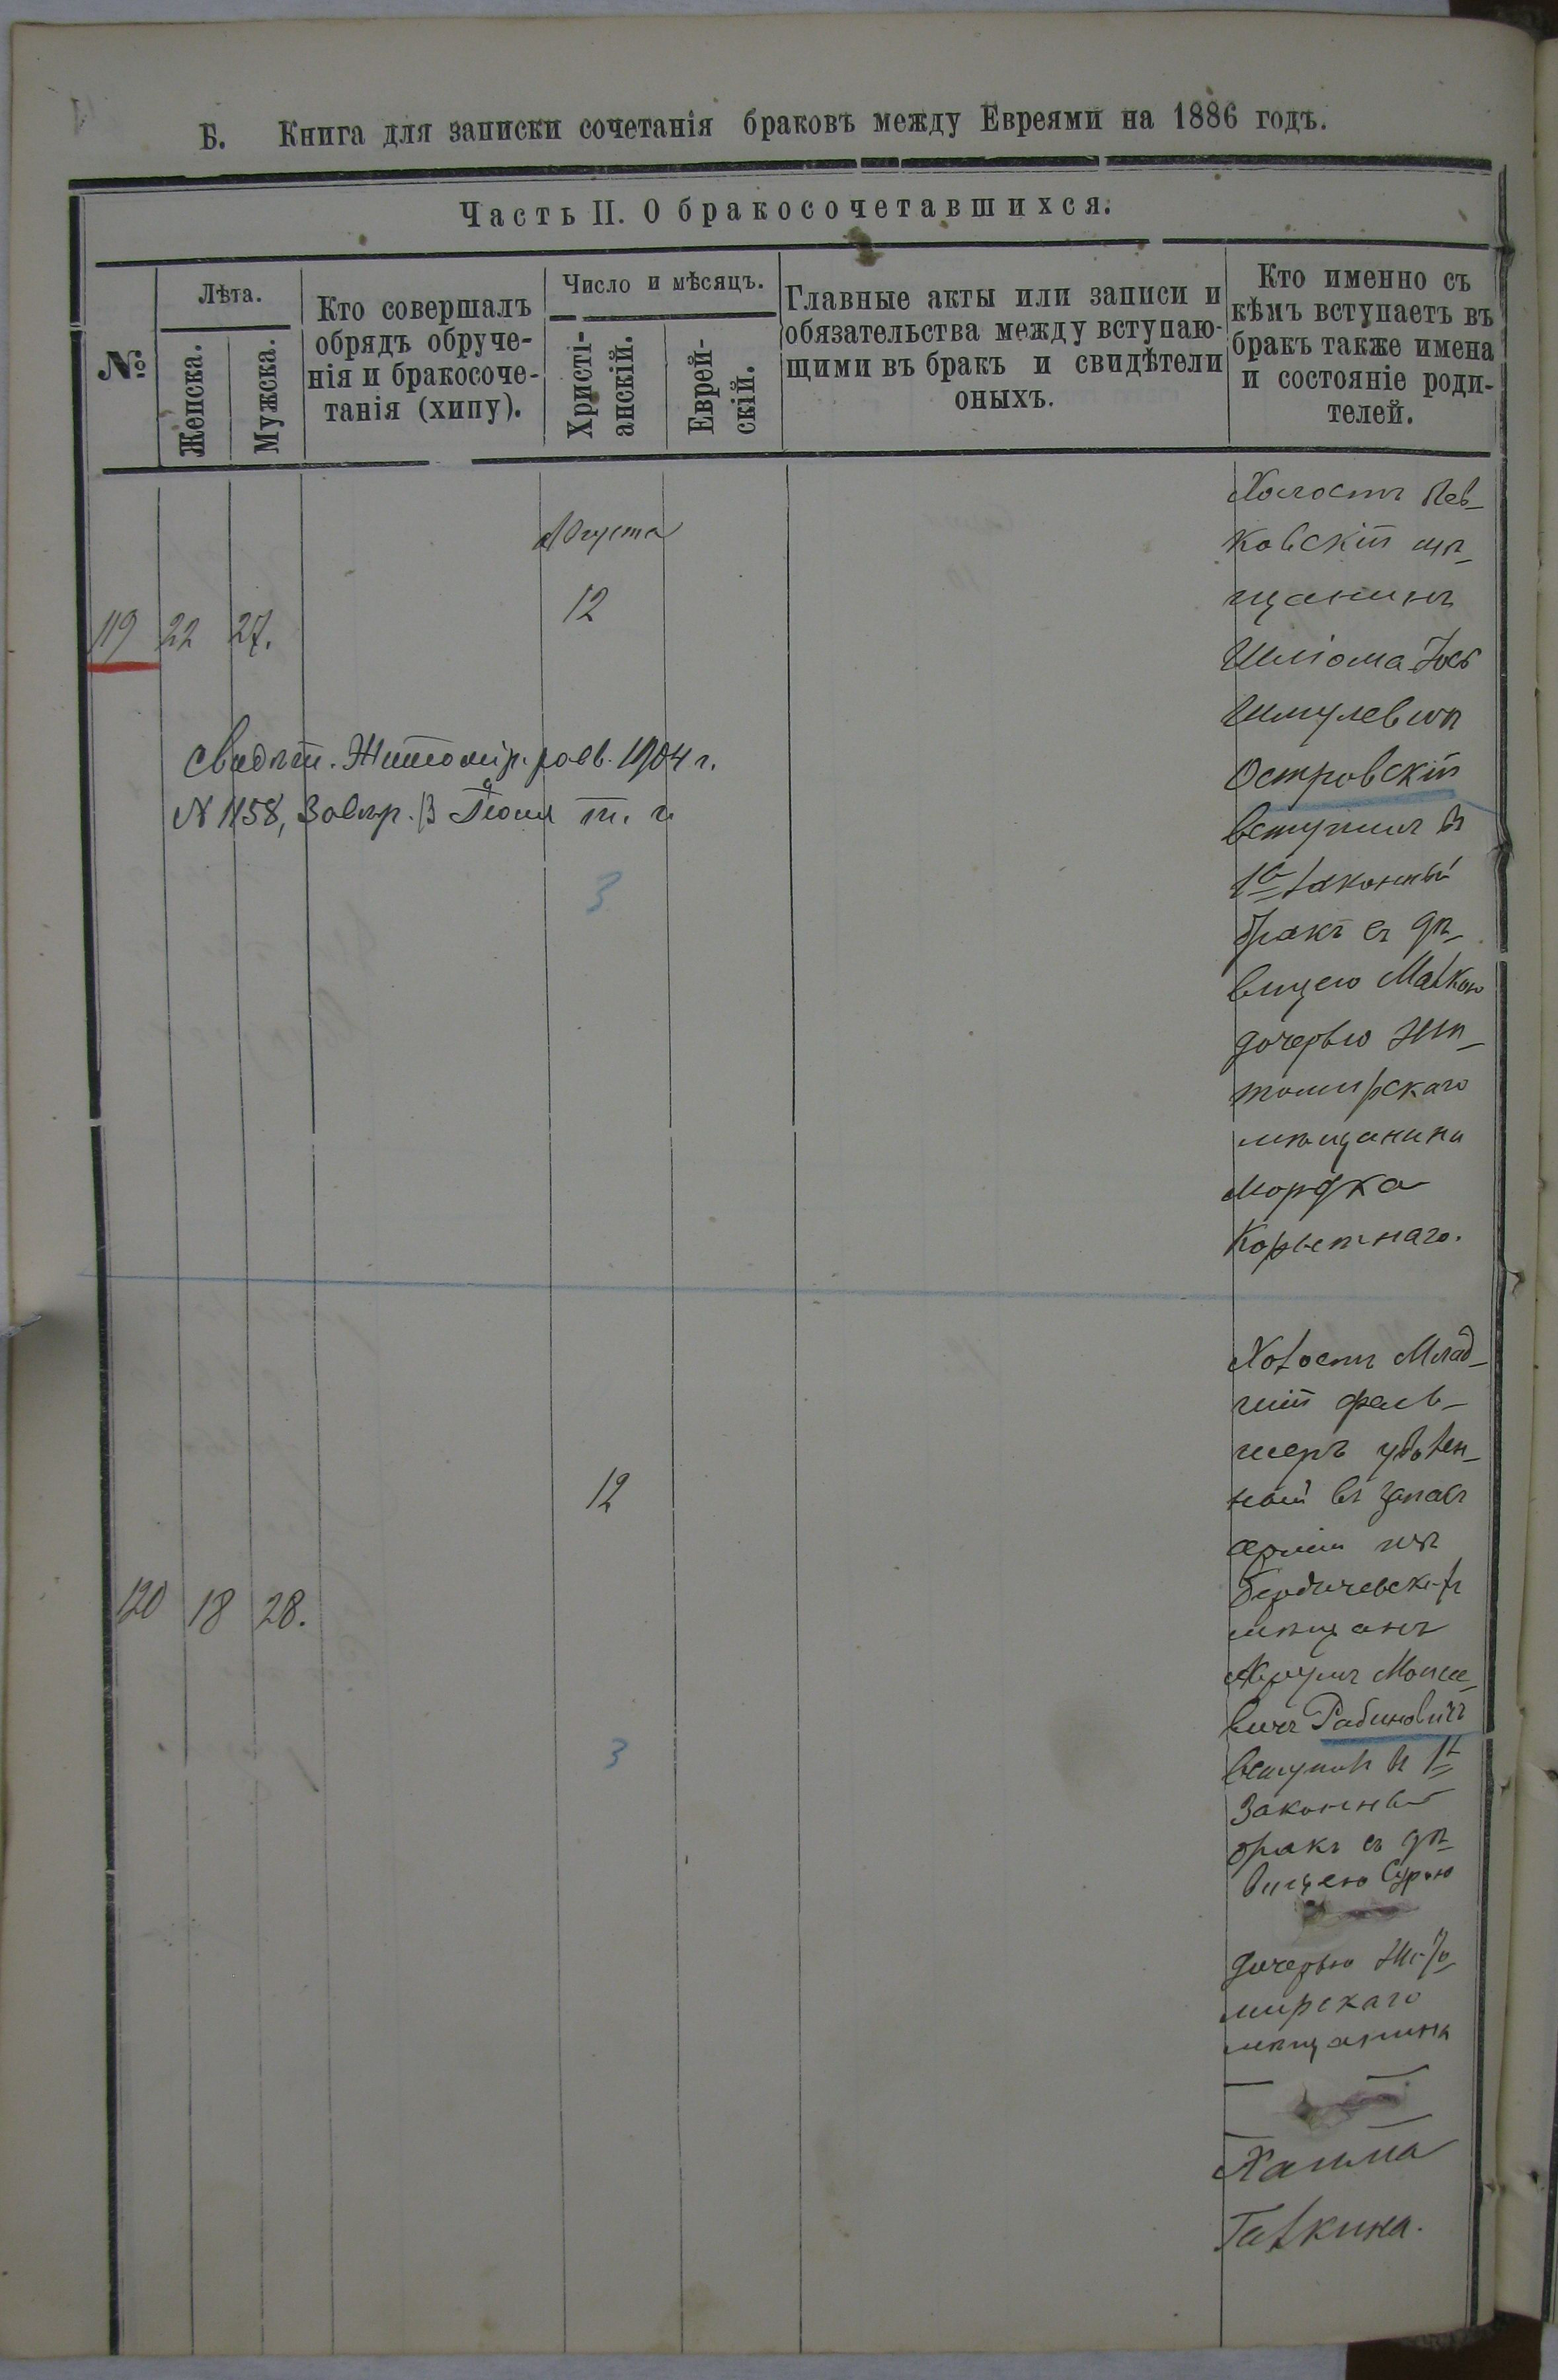 Б. Книга для записки сочетанія браковъ между Евреями на 1886 годъ.
Часть II. О бракосочетавшихся.
№
Лѣта.
Женска.
Мужска.
Кто совершалъ
обрядъ обруче-
нія и бракосоче-
танія (хипу).
Число и мѣсяцъ.
Христі-
анскій.
Еврей-
скій.
Главные акты или записи и
обязательства между вступаю-
щими въ бракъ и свидѣтели
оныхъ.
Кто именно съ
кѣмъ вступаетъ въ
бракъ также имена
и состояніе роди-
телей.
Августа
12
119 22 27.
Свидѣт. Житомір. равв. 1904 г.
N 1158, Завѣр. 13 Іюля т. г.
3
Холостъ Лев-
ковскій мѣ-
щанинъ
Шліома Іось
Шмулевичъ
Островскій
вступилъ въ
1й законный
бракъ съ дѣ-
вицею Малкою
дочерью Жи-
томирскаго
мѣщанина
Мордка
Коретнаго.
12
120 18 28.
3
Холостъ Млад-
шій фель-
шеръ уволен-
ный въ запасъ
арміи изъ
Бердичевскихъ
мѣщанъ
Аврумъ Мошко-
вичъ Рабиновичъ
вступилъ въ 1й
Законный
бракъ съ дѣ-
вицею Сурою
дочерью Жито-
мирскаго
мѣщанина
Хаима
Галкина.